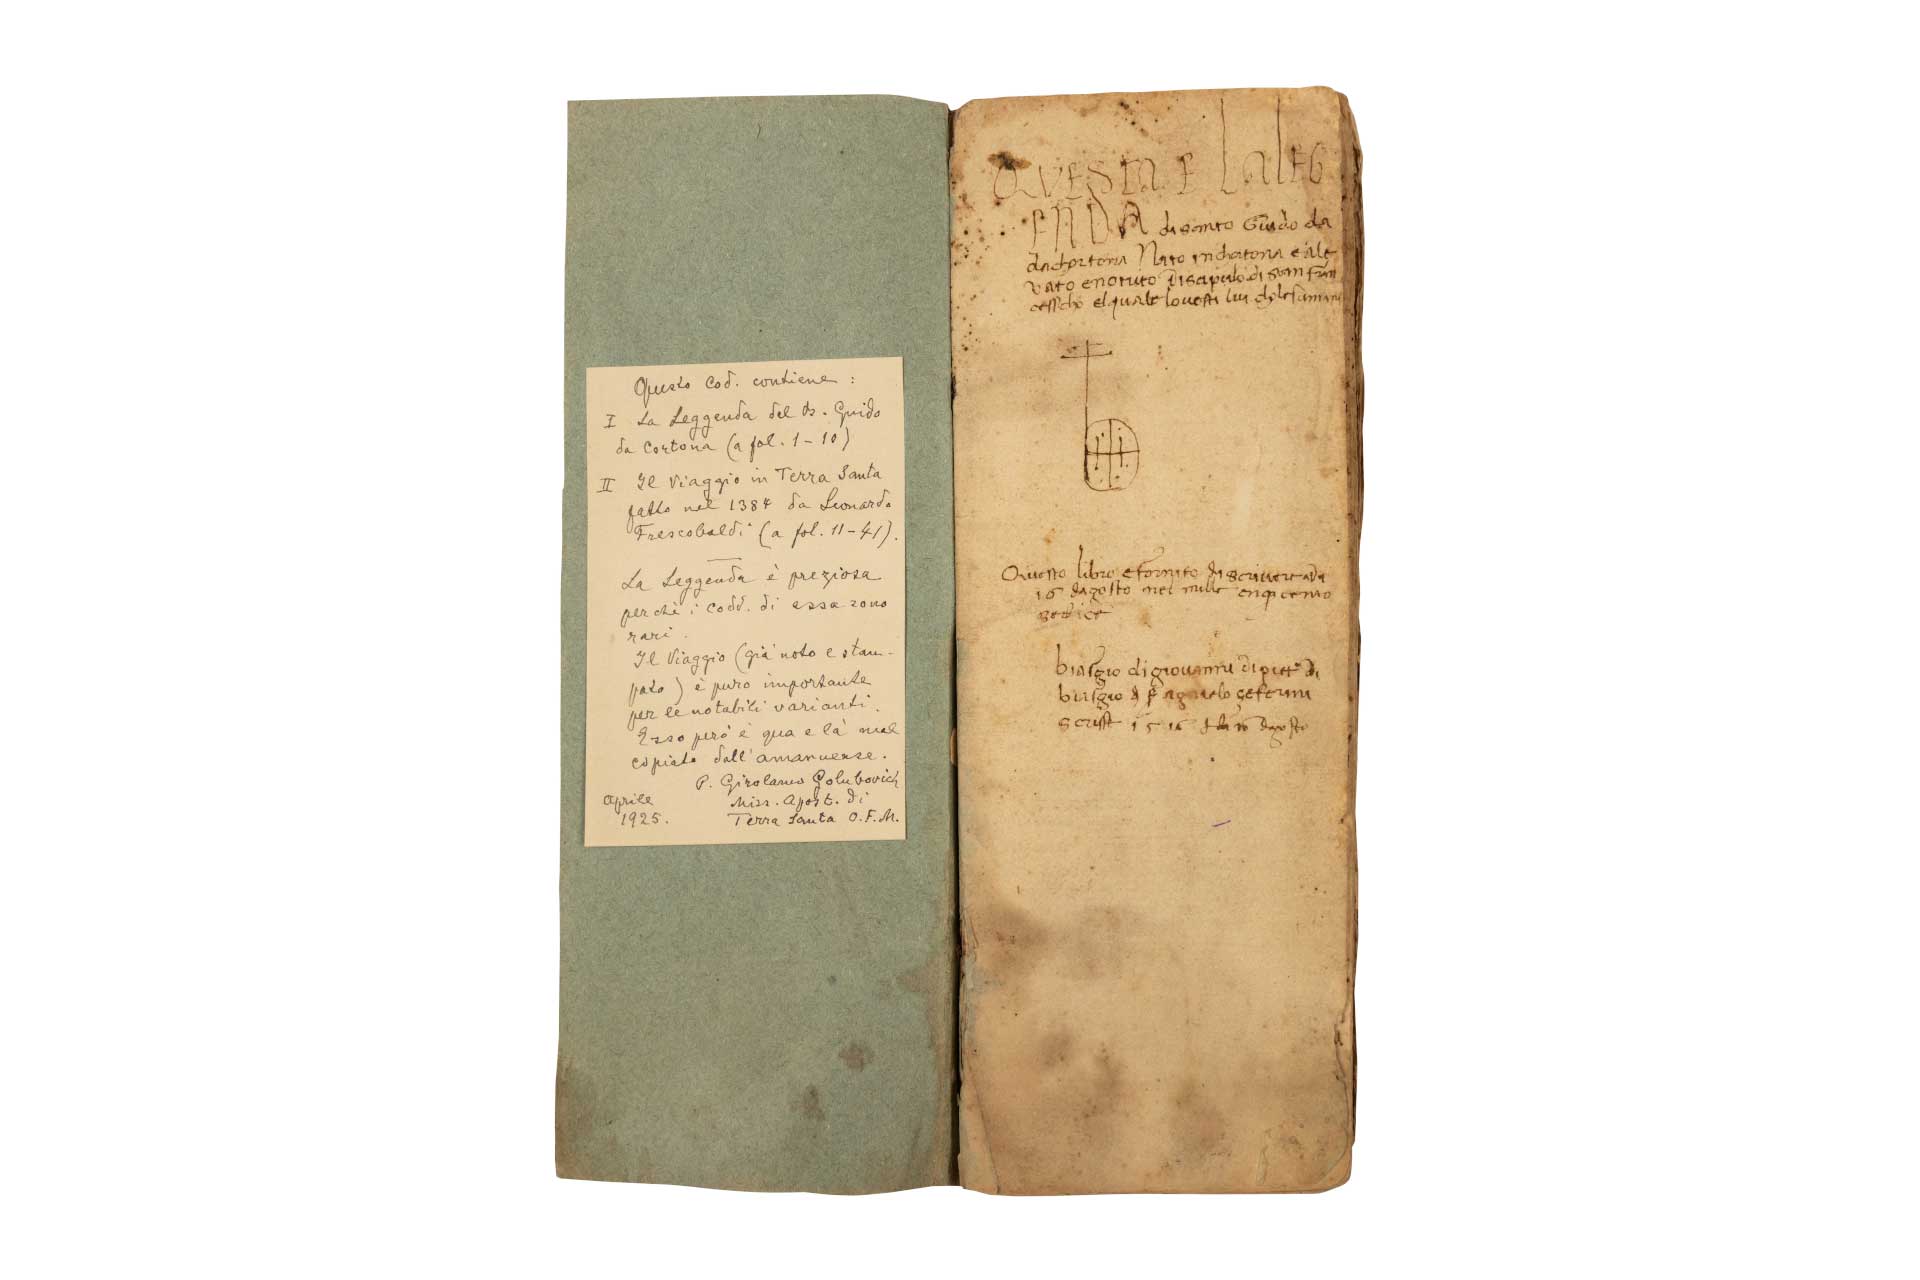 Questo Cod. contiene :
I La Leggenda del B. Guido
da Cortona (a fol. 1-10)
II Il Viaggio in Terra Santa
fatto nel 1384 da Leonardo
Frescobaldi (a fol. 11-41).
La Leggenda è preziosa
perchè i codd. di essa sono
rari.
Il Viaggio (già noto e stam-
pato) è puro importante
per le notabili varianti.
Esso però è qua e là mal
copiato dall'amanuense.
P. Girolamo Golubovich
Miss. Apost. di
Terra Santa O.F.M.
Aprile
1925.
QVESTA E LaLEG
ENDA di santo Guido da
dachortona Nato inchortona e ale
vato Discipulo di san fran
cesscho elquale lovesti lui
Questo libro e fornito di scrivere adi
16 dagosto nel mille cinqicento
sedice
biasgio di giovanni di piero di
biasgio d
scrisse 1516 16 dagosto